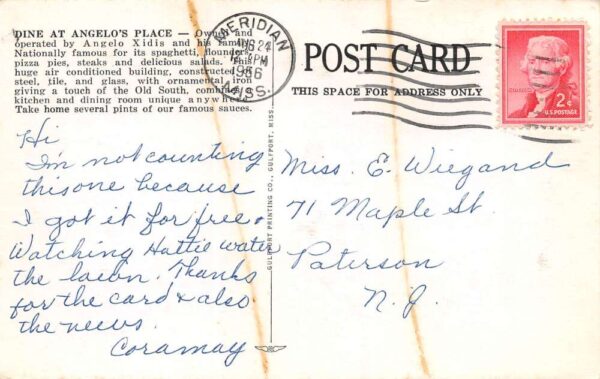 DINE AT ANGELO'S PLACE — Owned and
operated by Angelo Xidis and his family.
Nationally famous for its spaghetti, flounders,
pizza pies, steaks and delicious salads. This
huge air conditioned building, constructed of
steel, tile, and glass, with ornamental iron
giving a touch of the Old South, combines
kitchen and dining room unique anywhere.
Take home several pints of our famous sauces.
MERIDIAN
AUG 24
PM
1956
MISS.
POST CARD
THIS SPACE FOR ADDRESS ONLY
2¢
U.S. POSTAGE
GULFPORT PRINTING CO., GULFPORT, MISS.
Hi
I'm not counting
this one because
I got it for free.
Watching Hattie water
the lawn. Thanks
for the card & also
the news.
Coramay
Miss. E. Wiegand
71 Maple St.
Paterson
N. J.